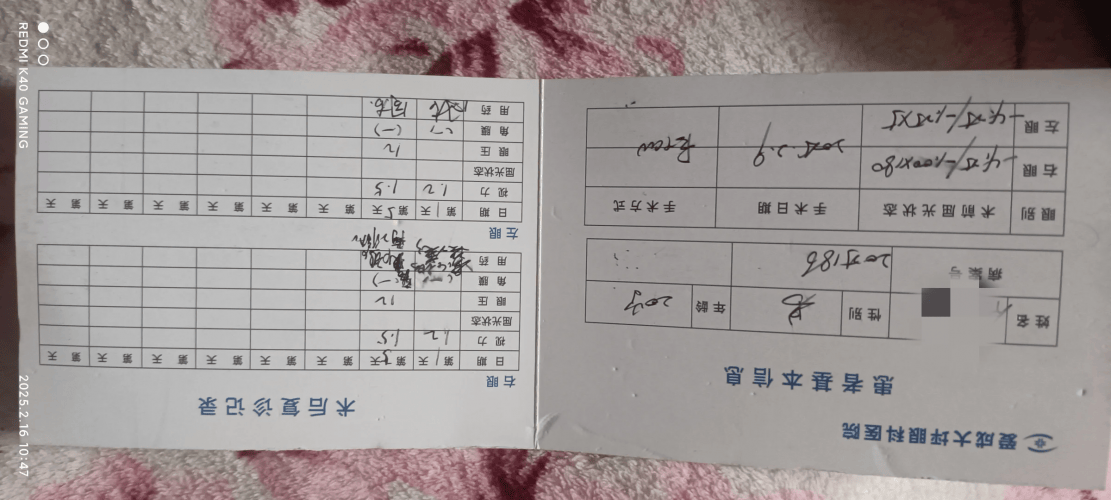 爱成大坪眼科医院
患者基本信息
姓名 性别 年龄 20岁
病案号
眼别 术前屈光状态 手术日期 手术方式
右眼 -4.25/-1.00×180
左眼 2025.2.9
术后复诊记录
右眼
日期 第1天 第5天 第 天 第 天 第 天 第 天 第 天 第 天
视力 1.2 1.5
屈光状态
眼压 12
角膜 (-) (-)
用药
左眼
日期 第1天 第5天 第 天 第 天 第 天 第 天 第 天 第 天
视力 1.2 1.5
屈光状态
眼压 12
角膜 (-) (-)
用药
REDMI K40 GAMING
2025.2.16 10:47